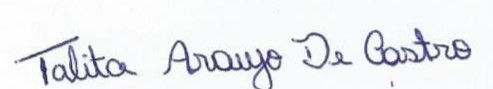 Talita Araujo De Castro